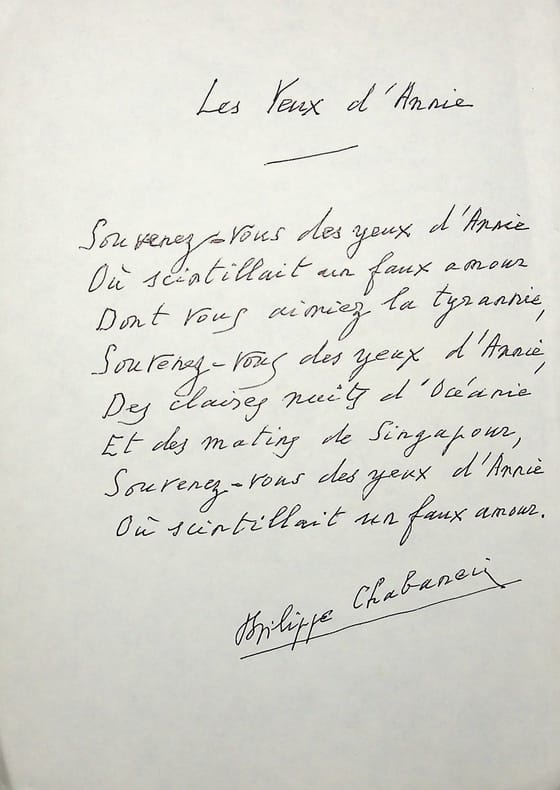 Les Yeux d'Annie
Souvenez-vous des yeux d'Annie
Où scintillait un faux amour
Dont vous aimiez la tyrannie,
Souvenez-vous des yeux d'Annie,
Des claires nuits d'Océanie
Et des matins de Singapour,
Souvenez-vous des yeux d'Annie
Où scintillait un faux amour.
Philippe Chabaneix